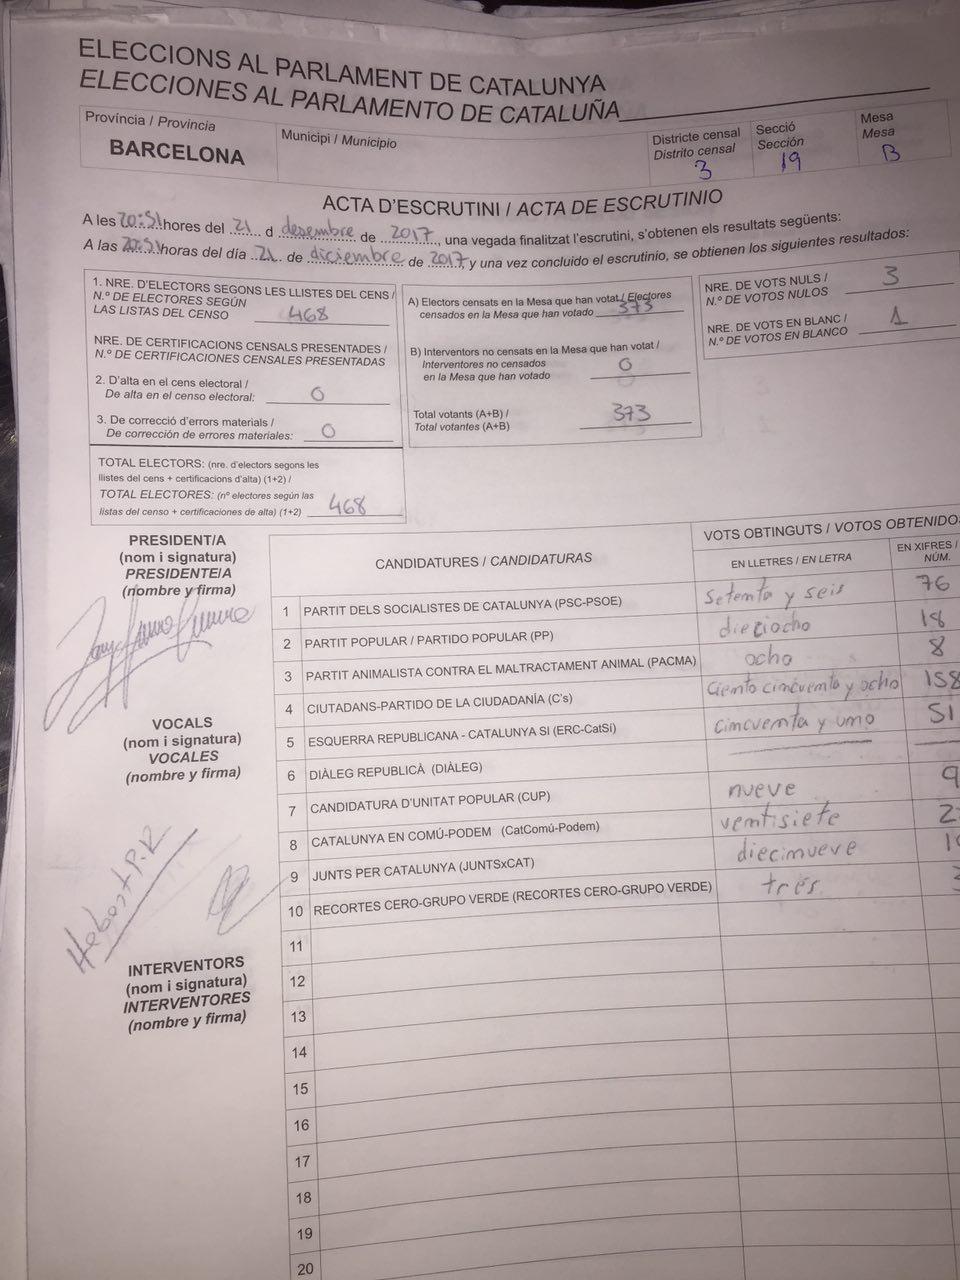 ELECCIONS AL PARLAMENT DE CATALUNYA
ELECCIONES AL PARLAMENTO DE CATALUÑA
Província / Provincia
BARCELONA
Municipi / Municipio
Districte censal
Distrito censal
3
Secció
Sección
19
Mesa
Mesa
B
ACTA D'ESCRUTINI / ACTA DE ESCRUTINIO
A les 20:51 hores del 21 d desembre de 2017, una vegada finalitzat l'escrutini, s'obtenen els resultats següents:
A las 20:51 horas del día 21 de diciembre de 2017, y una vez concluido el escrutinio, se obtienen los siguientes resultados:
1. NRE. D'ELECTORS SEGONS LES LLISTES DEL CENS /
N.º DE ELECTORES SEGÚN
LAS LISTAS DEL CENSO 468
NRE. DE CERTIFICACIONS CENSALS PRESENTADES /
N.º DE CERTIFICACIONES CENSALES PRESENTADAS
2. D'alta en el cens electoral /
De alta en el censo electoral: 0
3. De correcció d'errors materials /
De corrección de errores materiales: 0
TOTAL ELECTORS: (nre. d'electors segons les
llistes del cens + certificacions d'alta) (1+2) /
TOTAL ELECTORES: (nº electores según las
listas del censo + certificaciones de alta) (1+2) 468
A) Electors censats en la Mesa que han votat / Electores
censados en la Mesa que han votado 373
B) Interventors no censats en la Mesa que han votat /
Interventores no censados
en la Mesa que han votado 0
Total votants (A+B) /
Total votantes (A+B) 373
NRE. DE VOTS NULS /
N.º DE VOTOS NULOS 3
NRE. DE VOTS EN BLANC /
N.º DE VOTOS EN BLANCO 1
PRESIDENT/A
(nom i signatura)
PRESIDENTE/A
(nombre y firma)
VOCALS
(nom i signatura)
VOCALES
(nombre y firma)
INTERVENTORS
(nom i signatura)
INTERVENTORES
(nombre y firma)
CANDIDATURES / CANDIDATURAS
VOTS OBTINGUTS / VOTOS OBTENIDO
EN LLETRES / EN LETRA
EN XIFRES /
NÚM.
1 PARTIT DELS SOCIALISTES DE CATALUNYA (PSC-PSOE) setenta y seis 76
2 PARTIT POPULAR / PARTIDO POPULAR (PP) dieciocho 18
3 PARTIT ANIMALISTA CONTRA EL MALTRACTAMENT ANIMAL (PACMA) ocho 8
4 CIUTADANS-PARTIDO DE LA CIUDADANÍA (C's) ciento cincuenta y ocho 158
5 ESQUERRA REPUBLICANA - CATALUNYA SI (ERC-CatSi) cincuenta y uno 51
6 DIÀLEG REPUBLICÀ (DIÀLEG)
7 CANDIDATURA D'UNITAT POPULAR (CUP) nueve 9
8 CATALUNYA EN COMÚ-PODEM (CatComú-Podem) ventisiete 2
9 JUNTS PER CATALUNYA (JUNTSxCAT) diecinueve 1
10 RECORTES CERO-GRUPO VERDE (RECORTES CERO-GRUPO VERDE) tres
11
12
13
14
15
16
17
18
19
20